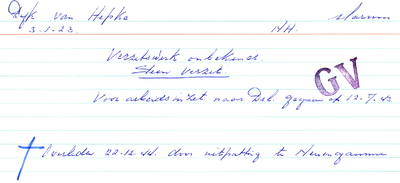 Dijk van Hepke NH. Marum
3-1-23.
Verzetswerk onbekend.
Geen verzet.
GV
Voor arbeidsinzet naar Dsl. gegaan op 12.7.43
Overleden 22-12-44. door uitputting te Neuengamme